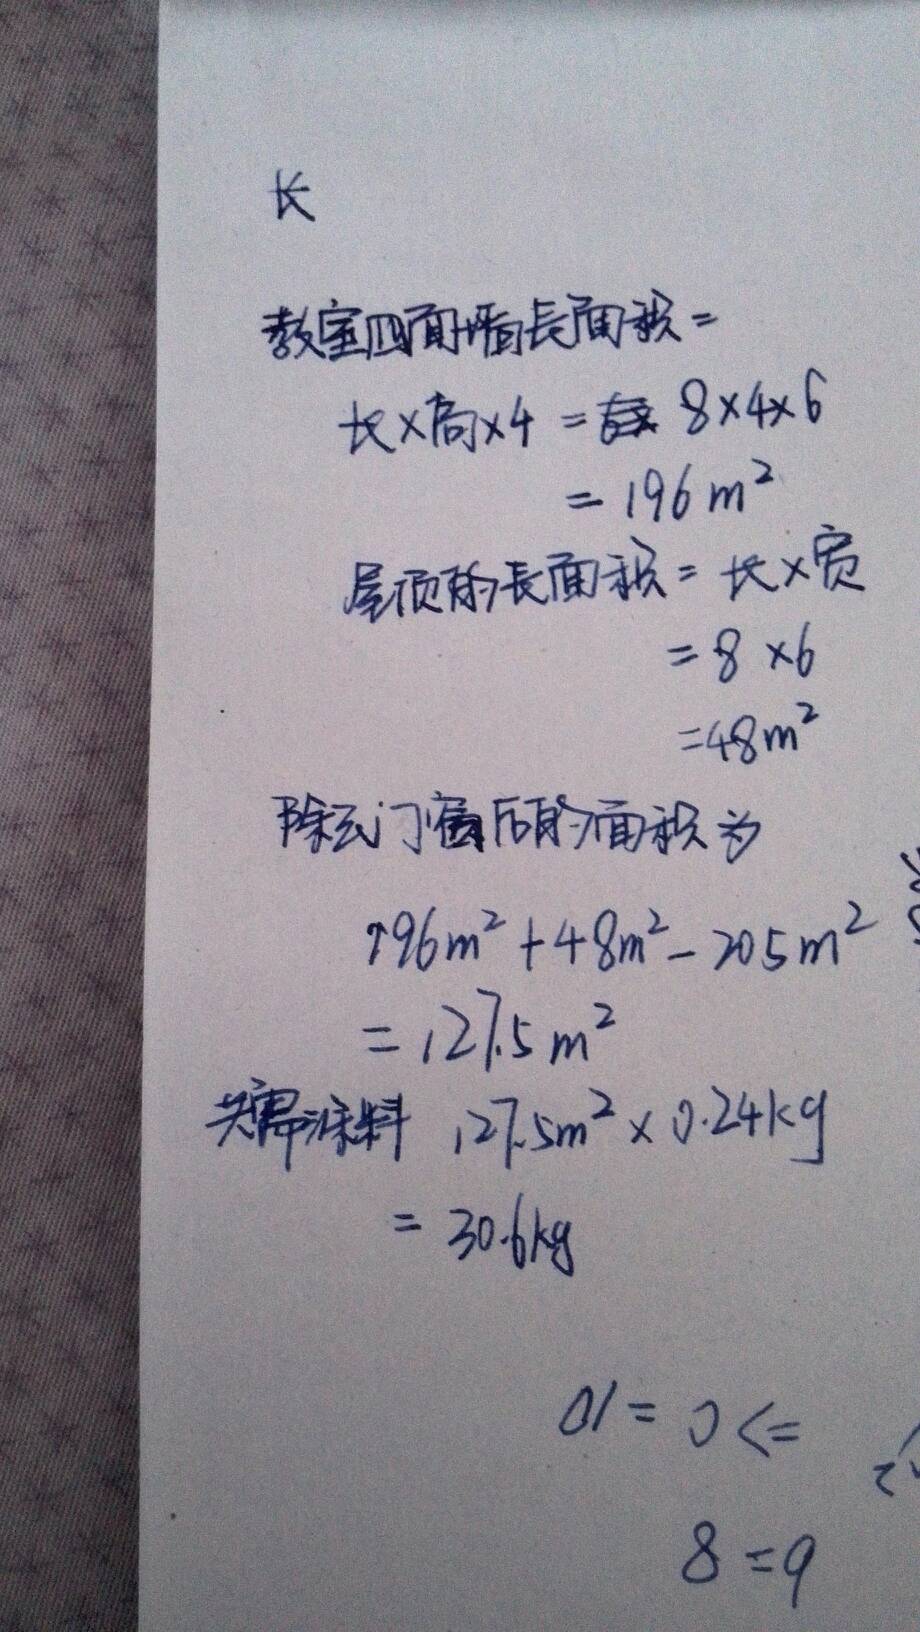 长
教室四面墙長面积=
长×高×4 = 8×4×6
= 196m²
屋顶的長面积= 长×宽
= 8 ×6
=48m²
除去门窗后的面积为
196m²+48m²-20.5m²
= 127.5m²
共需涂料 127.5m²×0.24kg
= 30.6kg
01= 0<=
8=9